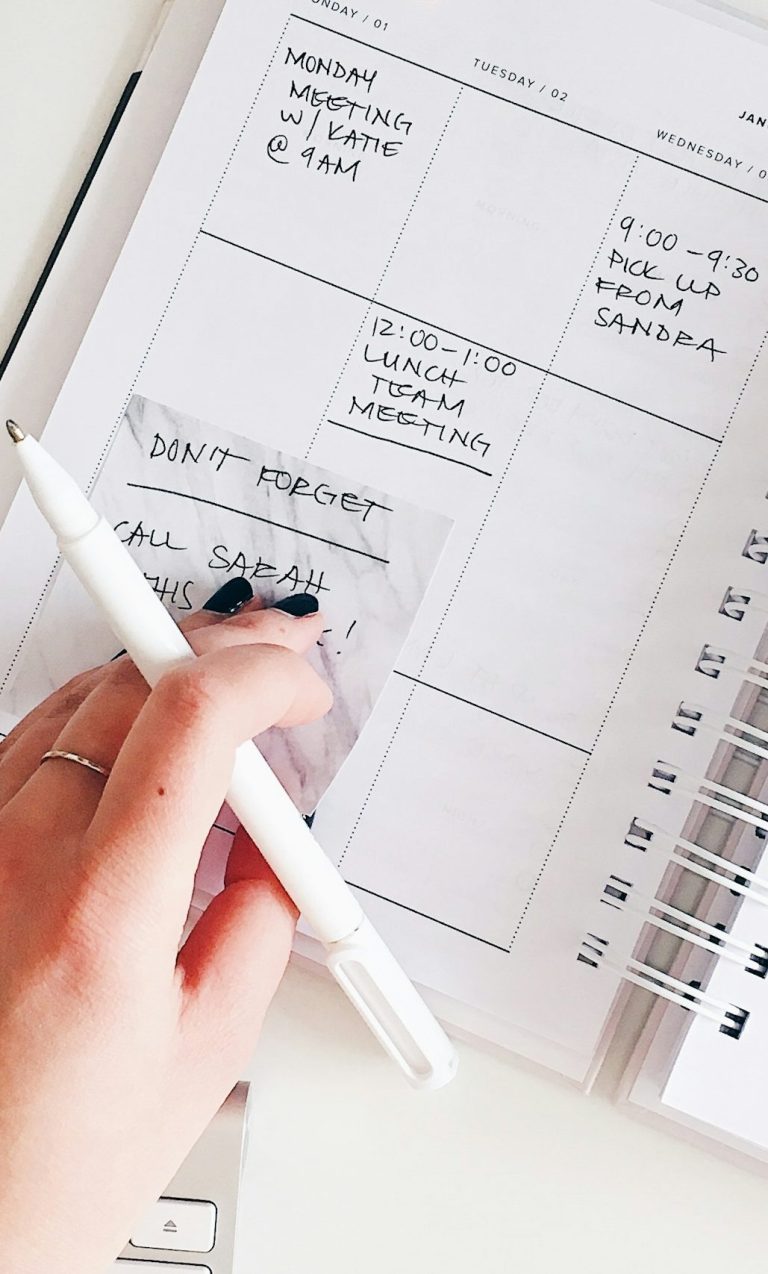 MONDAY / 01
MONDAY
MEETING
W/ KATIE
@ 9AM
TUESDAY / 02
12:00-1:00
LUNCH
TEAM
MEETING
JAN
WEDNESDAY / 0
9:00-9:30
PICK UP
FROM
SANDRA
DON'T FORGET
CALL SARAH
THIS